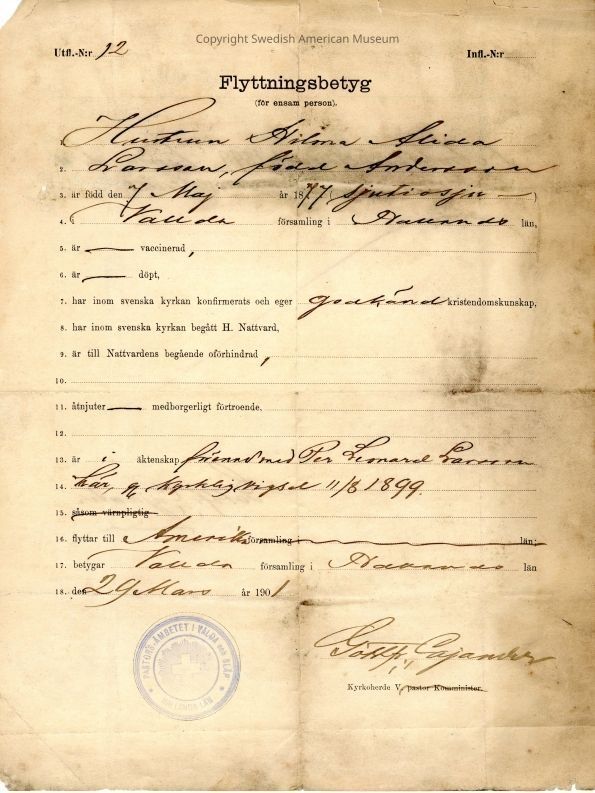 Copyright Swedish American Museum
Utfl.-N:r 12 Infl.-N:r
Flyttningsbetyg
(för ensam person).
1. Hustrun Hilma Alida
2. Larsson, född Andersson
3. är född den 7 Maj år 1877 (sjutiosju)
4. i Vallda församling i Hallands län,
5. är — vaccinerad,
6. är — döpt,
7. har inom svenska kyrkan konfirmerats och eger godkänd kristendomskunskap,
8. har inom svenska kyrkan begått H. Nattvard,
9. är till Nattvardens begående oförhindrad,
10.
11. åtnjuter — medborgerligt förtroende,
12.
13. är i äktenskap förenad med Per Leonard Larsson
14. här, kyrklig vigsel 11/8 1899.
15. såsom värnpligtig
16. flyttar till Amerika församling i län;
17. betygar Vallda församling i Hallands län
18. den 29 Mars år 1901
PASTORS-EMBETET I VALDA och SLÄP
HALLANDS LÄN
Gottfr. Cajander
Kyrkoherde V. pastor Komminister.